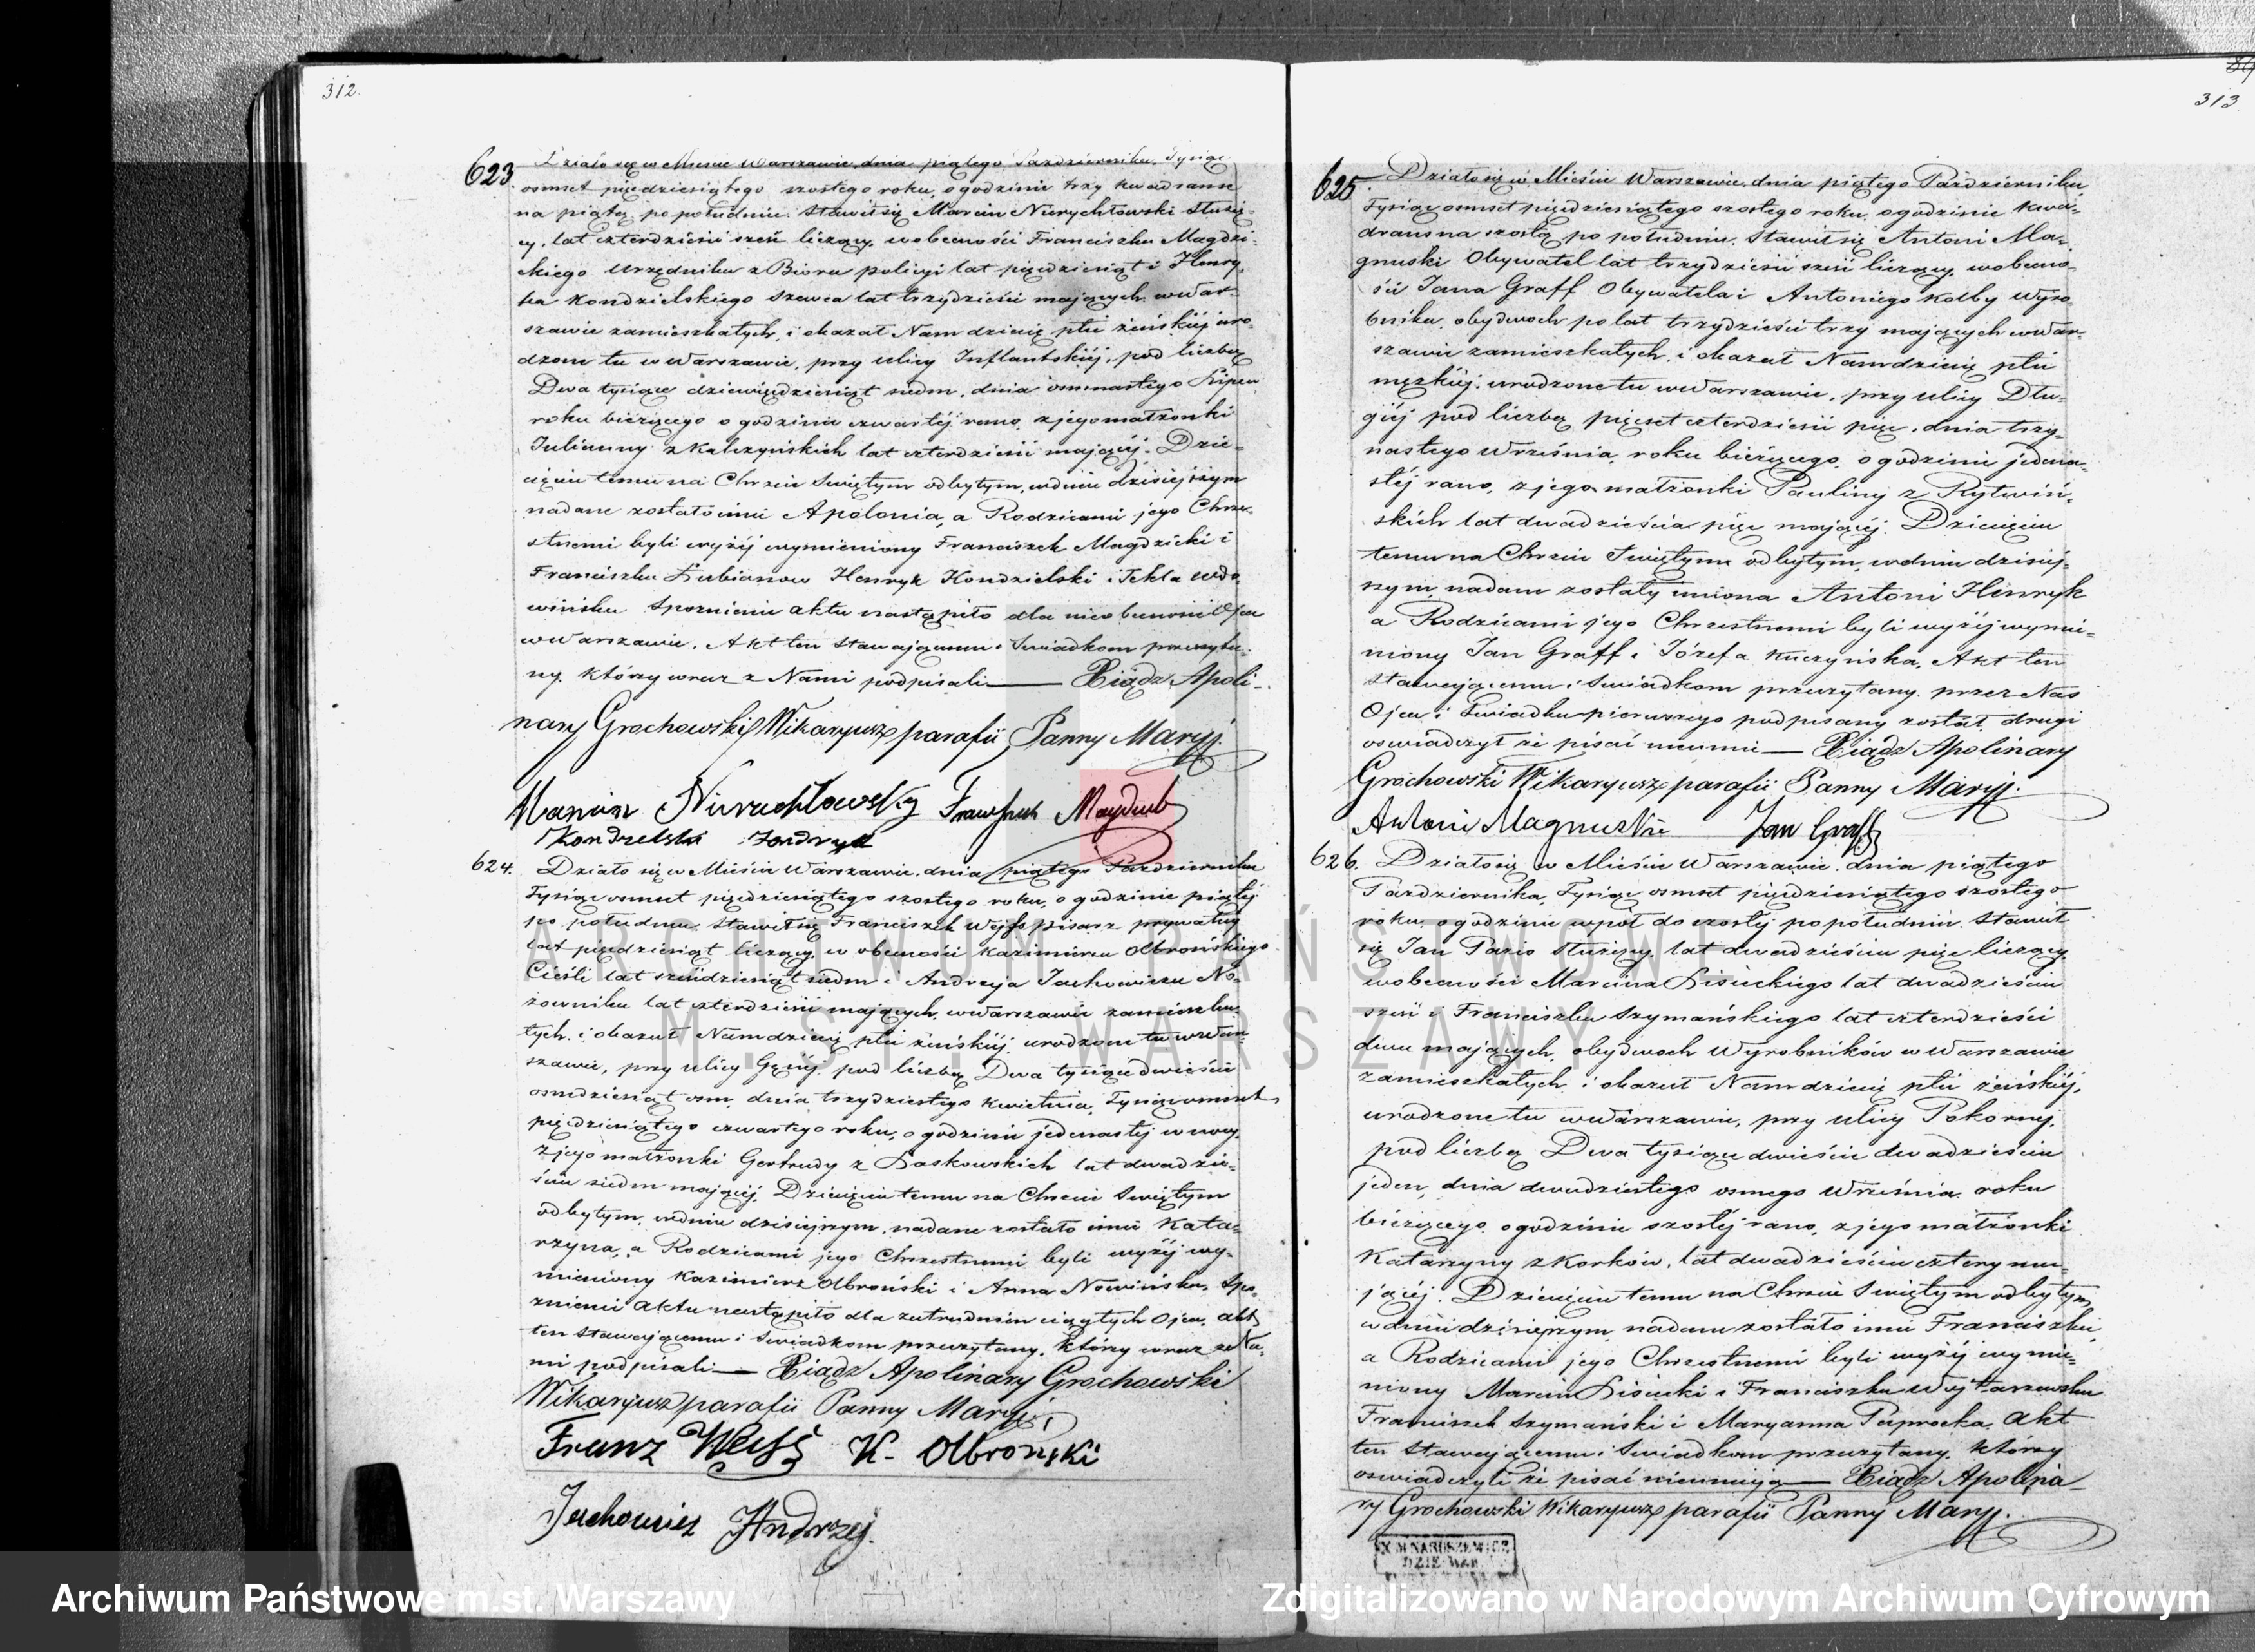 312.
623. Działo się w Mieście Warszawie, dnia piątego Października Tysiąc
osmset pięćdziesiątego szóstego roku, o godzinie trzy kwadranse
na piątą po południu. Stawił się Marcin Nurychłowski Służą-
cy, lat czterdzieści sześć liczący, w obecności Franciszka Magdzi-
ckiego Urzędnika z Biora policyi lat pięćdziesiąt i Henry-
ka Kondzielskiego Szewca lat trzydzieści mających w War-
szawie zamieszkałych, i okazał Nam dziecię płci żeńskiéj uro-
dzone tu w Warszawie, przy ulicy Inflantskiéj, pod liczbą
Dwa tysiące dziewięćdziesiąt siedm, dnia osmnastego Lipca
roku bieżącego o godzinie czwartéj rano, z jego małżonki
Julianny z Kulczyńskich lat czterdzieści mającéj. Dzie-
cięciu temu na Chrzcie Świętym odbytym, w dniu dzisiejszym
nadane zostało imie Apolonia, a Rodzicami jego Chrze-
stnemi byli wyżéj wymieniony Franciszek Magdzicki i
Franciszka Łubianow Henryk Kondzielski i Tekla Wdo-
wińska Spóznienie aktu nastąpiło dla nieobecności Ojca
w Warszawie. Akt ten Stawającemu i Świadkom przeczyta-
ny, którzy wraz z Nami podpisali — Xiądz Apoli-
nary Grochowski Wikaryusz parafii Panny Maryj.
Marcin Nurychłowsky Franciszek Magdzicki
Kondzelski Hendryk
624. Działo się w Mieście Warszawie, dnia piątego Października
Tysiąc osmset pięćdziesiątego szóstego roku, o godzinie piątéj
po południu. Stawił się Franciszek Wejfs pisarz prywatny
lat pięćdziesiąt liczący, w obecności Kazimierza Olbrońskiego
Cieśli lat sześćdziesiąt siedm i Andrzeja Jachowicza No-
żownika lat czterdzieści mających, w Warszawie zamieszka-
łych, i okazał Nam dziecię płci żeńskiéj, urodzone tu w War-
szawie, przy ulicy Gęsiéj pod liczbą Dwa tysiące dwieście
osmdziesiąt osm, dnia trzydziestego Kwietnia, Tysiąc osmset
pięćdziesiątego czwartego roku, o godzinie jedenastéj w nocy,
z jego małżonki Gertrudy z Laskowskich lat dwadzie-
ścia siedm mającéj. Dziecięciu temu na Chrzcie Świętym
odbytym, w dniu dzisiejszym, nadane zostało imie Kata-
rzyna, a Rodzicami jego Chrzestnemi byli wyżéj wy-
mieniony Kazimierz Olbroński i Anna Nowińska. Spó-
znienie aktu nastąpiło dla zatrudnień ciągłych Ojca, akt
ten Stawającemu i Świadkom przeczytany, którzy wraz z Na-
mi podpisali — Xiądz Apolinary Grochowski
Wikaryusz parafii Panny Maryj
Franz Weyss K. Olbronski
Jachowicz Andrzej.
313
625. Działo się w Mieście Warszawie, dnia piątego Października
Tysiąc osmset pięćdziesiątego szóstego roku, o godzinie kwa-
drans na szóstą po południu. Stawił się Antoni Ma-
gnuski Obywatel lat trzydzieści sześć liczący, w obecno-
ści Jana Graff Obywatela i Antoniego Kolby Wyro-
bnika, obydwóch po lat trzydzieści trzy mających w War-
szawie zamieszkałych, i okazał Nam dziecię płci
męzkiéj, urodzone tu w Warszawie, przy ulicy Dłu-
giéj pod liczbą pięćset czterdzieści pięć, dnia trzy-
nastego Września, roku bieżącego, o godzinie jedena-
stéj rano, z jego małżonki Pauliny z Rytwiń-
skich lat dwadzieścia pięć mającéj. Dziecięciu
temu na Chrzcie Świętym odbytym, w dniu dzisiéj-
szym, nadane zostały imiona Antoni Henryk
a Rodzicami jego Chrzestnemi byli wyżéj wymie-
niony Jan Graff i Józefa Kuczyńska, Akt ten
Stawającemu i Świadkom przeczytany, przez Nas
Ojca i Świadka pierwszego podpisany został, drugi
oswiadczył że pisać nieumie — Xiądz Apolinary
Grochowski Wikaryusz parafii Panny Maryj.
Antoni Magnuskie Jan Graff
626. Działo się w Mieście Warszawie, dnia piątego
Października, Tysiąc osmset pięćdziesiątego szóstego
roku, o godzinie wpół do szóstéj po południu. Stawił
się Jan Pazio Służący, lat dwadzieścia pięć liczący,
w obecności Marcina Lisieckiego lat dwadzieścia
sześć i Franciszka Szymańskiego lat czterdzieści
dwa mających, obydwóch Wyrobników w Warszawie
zamieszkałych i okazał Nam dziecię płci żeńskiéj,
urodzone tu w Warszawie, przy ulicy Pokornej,
pod liczbą Dwa tysiące dwieście dwadzieścia
jeden, dnia dwudziestego osmego Września roku
bieżącego, o godzinie szóstéj rano, z jego małżonki
Katarzyny z Korków, lat dwadzieścia cztery ma-
jącéj. Dziecięciu temu na Chrzcie Świętym odbytym
w dniu dzisiejszym, nadane zostało imie Franciszka
a Rodzicami jego Chrzestnemi byli wyżéj wymie-
niony Marcin Lisiecki i Franciszka Wojtarzewska
Franciszek Szymański i Maryanna Paprocka. Akt
ten Stawającemu i Świadkom przeczytany, którzy
oswiadczyli że pisać nieumieją — Xiądz Apolina-
ry Grochowski Wikaryusz parafii Panny Maryj.
ARCHIWUM PAŃSTWOWE
M.ST. WARSZAWY
Archiwum Państwowe m.st. Warszawy
Zdigitalizowano w Narodowym Archiwum Cyfrowym